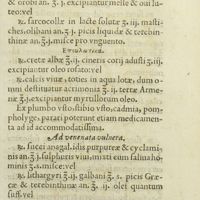 & orobi an. ʒ. j. excipiantur melle & oui lu
teo: vel
℞. sarcocollæ in lacte solutæ ʒ. iij. masti-
ches, olibani an. ʒ. j. picis liquidæ & terebin-
thinæ an. ʒ. j. misce pro vnguento.
℞. cretæ albæ ʒ. ij. cineris corij adusti ʒ. iij.
excipiantur oleo rosato: vel
℞. calcis viuæ, toties in aqua lotæ, dum o-
mni destituatur acrimonia ʒ. ij. terræ Arme-
næ ʒ. j. excipiantur myrtillorum oleo.
Ex plumbo vsto, stibio vsto, cadmia, pom-
pholyge, parari poterunt etiam medicamen-
ta ad id accommodatissima.
Ad venenata vulnera.
℞. succi anagalidis purpureæ & cyclami-
nis an ʒ. j. sulphuris viui, mati eum salina ho-
minis ʒ. s. misce: vel
℞. lithargyri ʒ. ij. galbani ʒ. s. picis Græ-
cæ & terebinthinæ an. ʒ. ij. olei quantum
suff. vel